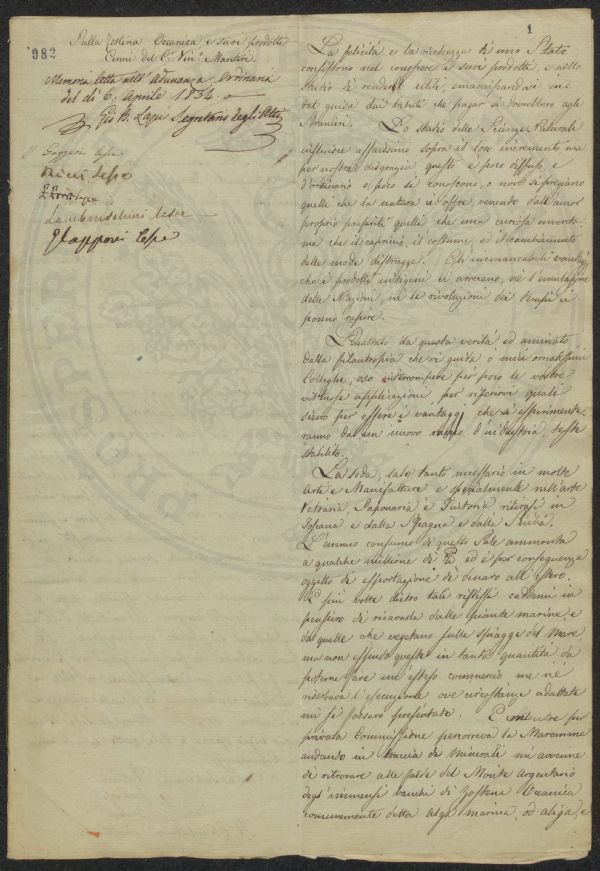 982
Sulla Zostera Oceanica e suoi prodotti
Cenni del C. Vin. Manteri
Memoria letta nell'adunanza ordinaria
del dì 6. Aprile 1834.
Segretario degli Atti
Gazzeri
1
La felicità e la ricchezza di uno Stato
consistono nel conoscere i suoi prodotti, e nello
studio di renderli utili, emancipandosi in
tal guisa dai tributi che pagar si dovrebbero agli
stranieri. Lo studio delle Scienze Naturali
influisce assaissimo sopra il loro incremento, ma
per nostra disgrazia questo è poco diffuso, e
d'ordinario o poco si conoscono, o non si pregiano
quelle che la natura ci offre, venendo dall'amor
proprio preferiti quelle che una curiosa inventa,
ma che il capriccio, il costume, ed il cambiamento
delle mode distrugge. Gli immancabili vantaggi
che i prodotti indigeni ci arrecano, nè l'emulazione
delle Nazioni, nè le rivoluzioni dei tempi ci
ponno rapire.
Penetrato da questa verità ed animato
dalla filantropia che vi guida o miei ornatissimi
Colleghi, oso interrompere per poco le vostre
virtuose applicazioni, per riferirvi quali
sieno per essere i vantaggi che si esperimente-
ranno da un nuovo ramo d'industria, teste
stabilito.
La soda, sale tanto necessario in molte
Arti e Manifatture e specialmente nell'arte
Vetraria, Saponaria e Tintoria ritirasi in
Toscana e dalla Spagna e dalla Sicilia.
L'annuo consumo di questo Sale ammonta
a qualche millione di ed è per conseguenza
oggetto di esportazione di denaro all'estero.
E più volte dietro tali riflessi caddemi in
pensiero di ricavarla dalle piante marine, e
da quelle che vegetano sulle spiagge del Mare
ma non essendo queste in tanta quantità da
poterne fare un esteso commercio me ne
riserbava l'esecuzione ove circostanze adattate
mi si fossero presentate. E mentre per
privata commissione percorreva la Maremma
andando in traccia di minerali mi avvenne
di ritrovare alle falde del Monte Argentario
degl'immensi banchi di Zostera Oceanica
comunemente detta alga marina, od aliga, e